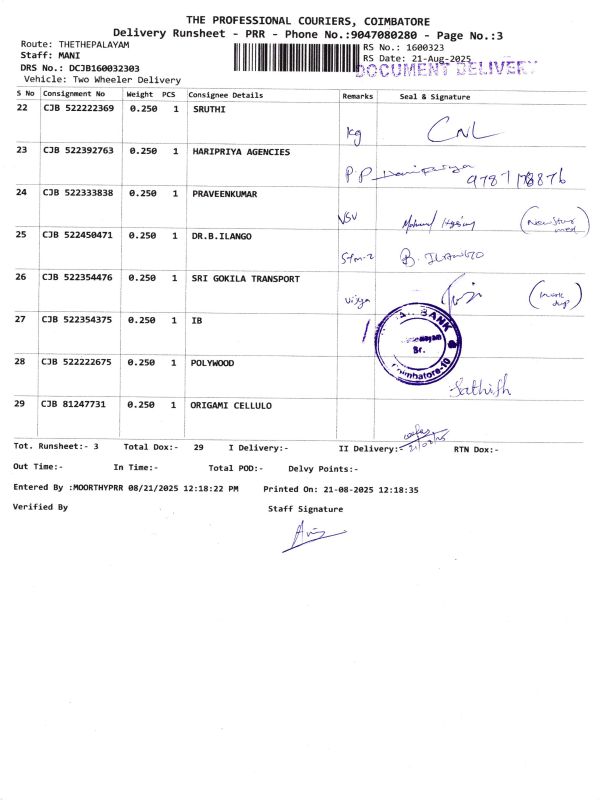 THE PROFESSIONAL COURIERS, COIMBATORE
Delivery Runsheet - PRR - Phone No.:9047080280 - Page No.:3
Route: THETHEPALAYAM
RS No.: 1600323
Staff: MANI
RS Date: 21-Aug-2025
DRS No.: DCJB160032303
DOCUMENT DELIVERY
Vehicle: Two Wheeler Delivery
S No Consignment No Weight PCS Consignee Details Remarks Seal & Signature
22 CJB 522222369 0.250 1 SRUTHI
kg CNL
23 CJB 522392763 0.250 1 HARIPRIYA AGENCIES
P.P Haripriya
24 CJB 522333838 0.250 1 PRAVEENKUMAR
VSV
25 CJB 522450471 0.250 1 DR.B.ILANGO
B. ILANGO
26 CJB 522354476 0.250 1 SRI GOKILA TRANSPORT
Vijya
27 CJB 522354375 0.250 1 IB
BANK
Br.
Coimbatore-10
28 CJB 522222675 0.250 1 POLYWOOD
Sathish
29 CJB 81247731 0.250 1 ORIGAMI CELLULO
21/08/25
Tot. Runsheet:- 3 Total Dox:- 29 I Delivery:- II Delivery:- RTN Dox:-
Out Time:- In Time:- Total POD:- Delvy Points:-
Entered By :MOORTHYPRR 08/21/2025 12:18:22 PM Printed On: 21-08-2025 12:18:35
Verified By Staff Signature